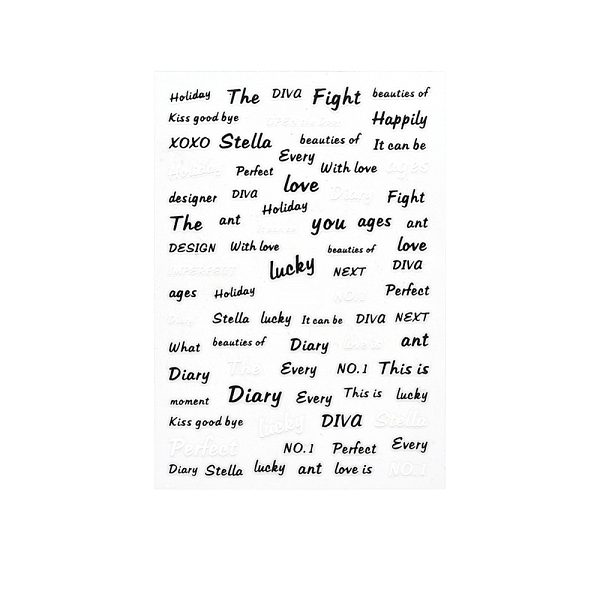 Holiday The DIVA Fight beauties of
Kiss good bye Happily
XOXO Stella beauties of It can be
Every
Holiday Perfect With love ages
love
designer DIVA Diary Fight
Holiday
The ant you ages ant
DESIGN With love beauties of love
IMPERFECT lucky NEXT DIVA
ages Holiday NO.1 Perfect
Diary Stella lucky It can be DIVA NEXT
What beauties of Diary love is ant
Diary The Every NO.1 This is
moment Diary Every This is lucky
Kiss good bye lucky DIVA Stella
Perfect NO.1 Perfect Every
Diary Stella lucky ant love is NO.1